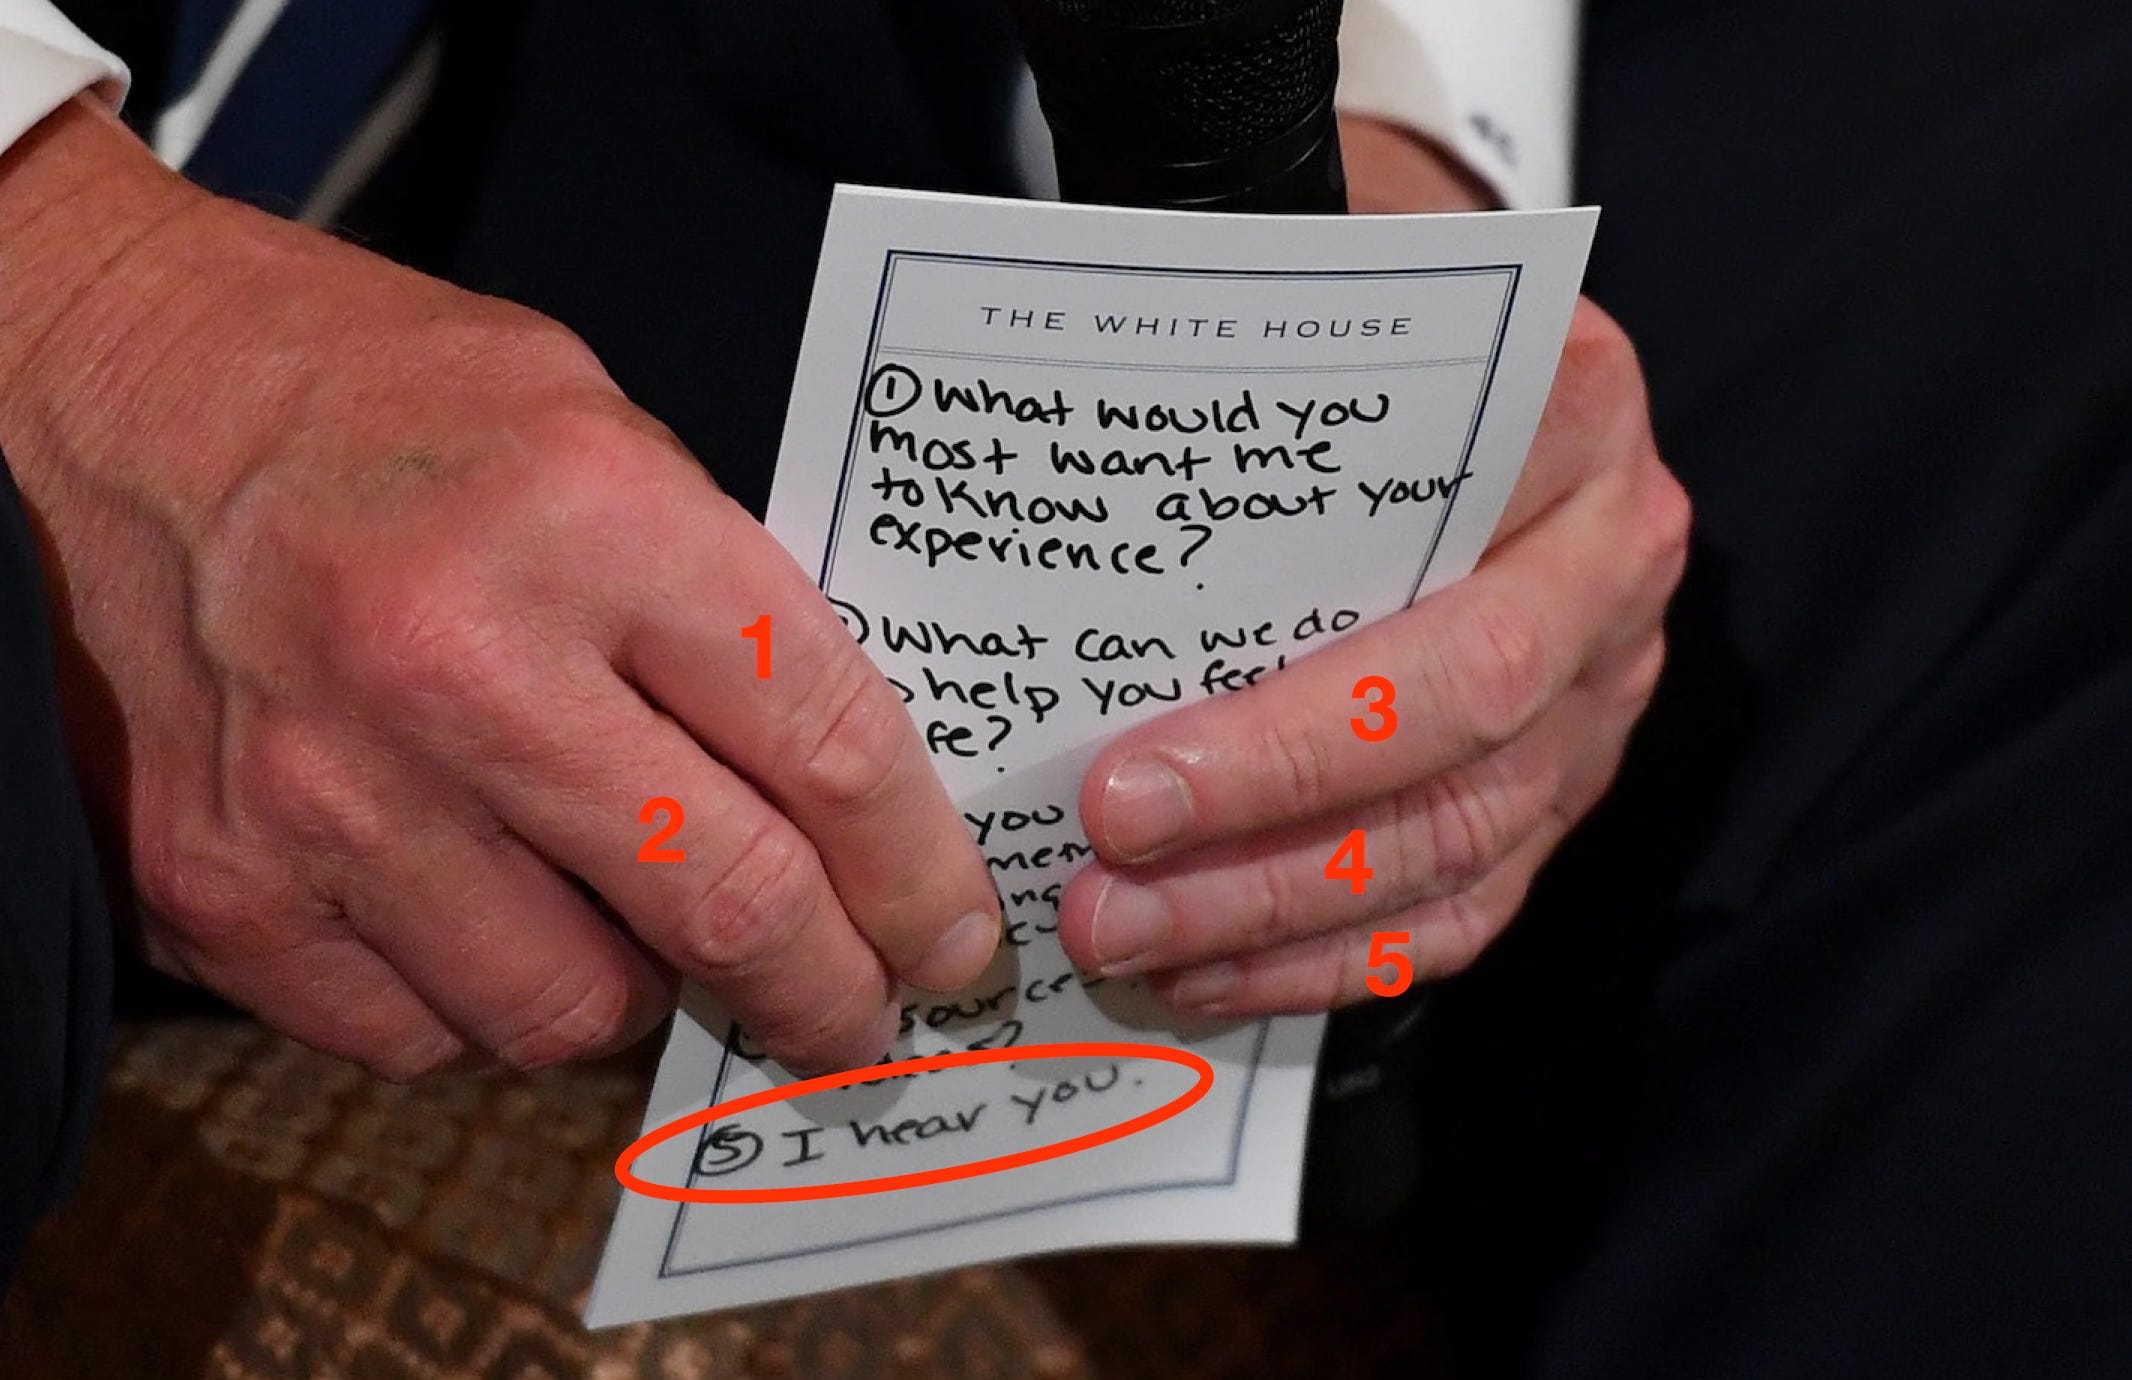 THE WHITE HOUSE
① What would you
most want me
to know about your
experience?
What can we do
help you feel
fe?
you
5 I hear you.
1
2
3
4
5